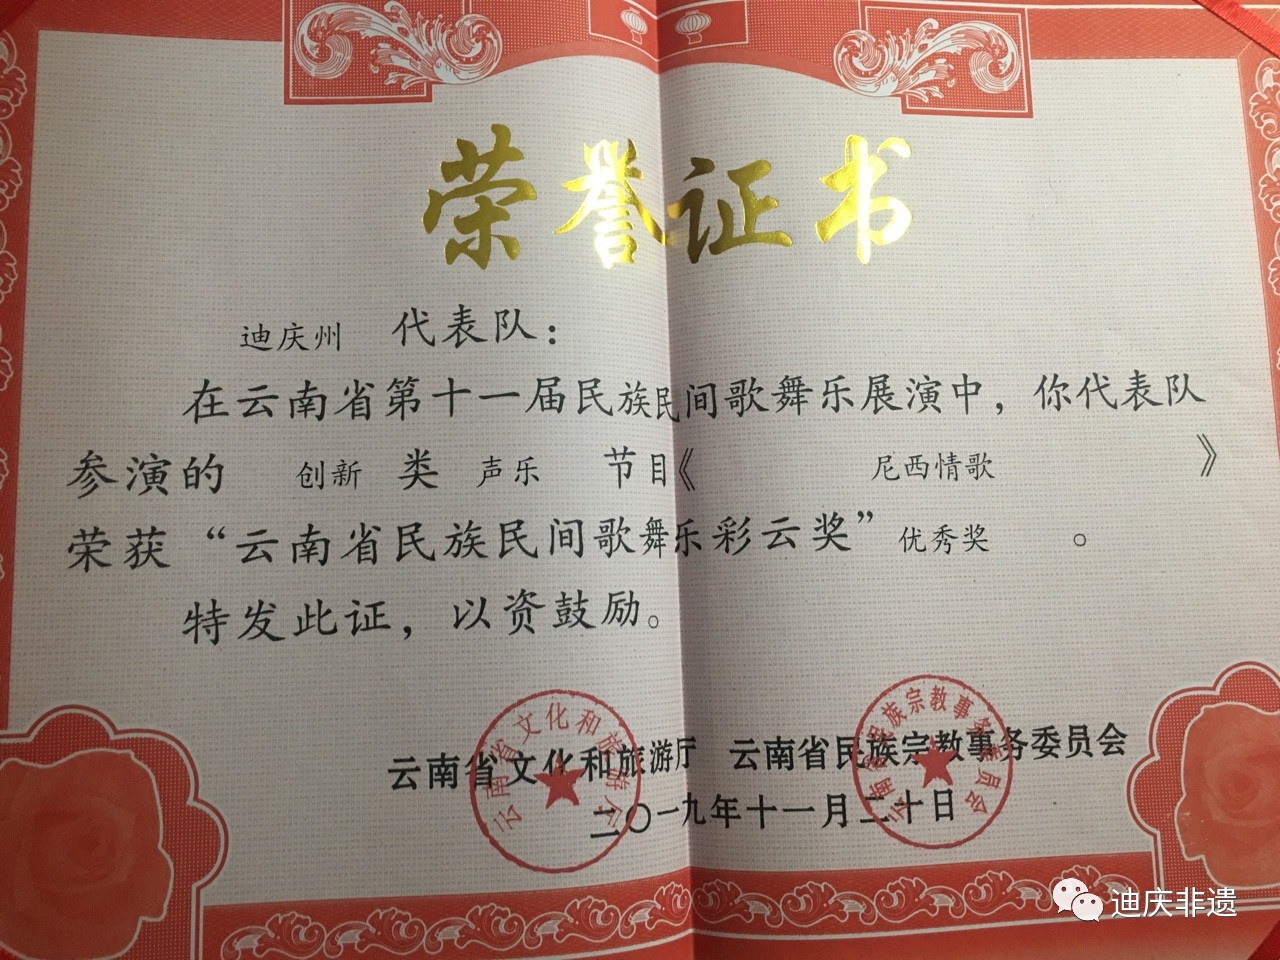 荣誉证书
迪庆州 代表队：
在云南省第十一届民族民间歌舞乐展演中，你代表队
参演的 创新 类 声乐 节目《 尼西情歌 》
荣获“云南省民族民间歌舞乐彩云奖”优秀奖 。
特发此证，以资鼓励。
云南省文化和旅游厅 云南省民族宗教事务委员会
二〇一九年十一月二十日
云南省文化和旅游厅
云南省民族宗教事务委员会
迪庆非遗